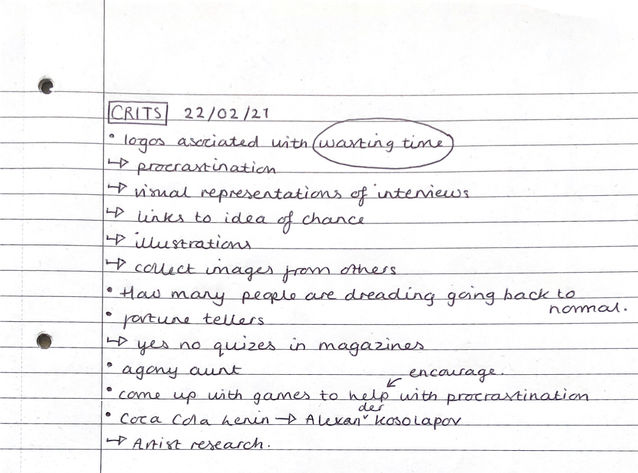 CRITS 22/02/21
• logos asociated with wasting time
↳ procrastination
↳ visual representations of interviews
↳ links to idea of chance
↳ illustrations
↳ collect images from others
• How many people are dreading going back to
normal.
• fortune tellers
↳ yes no quizes in magazines
• agony aunt
encourage.
• come up with games to help with procrastination
• Coca Cola Lenin → Alexander Kosolapov
↳ Artist research.